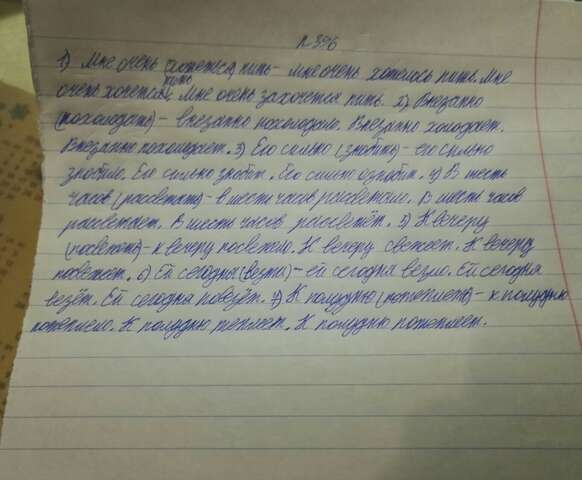 №396
1) Мне очень (хотеться) пить - мне очень хотелось пить. Мне
очень хочется пить. Мне очень захочется пить. 2) Внезапно
(похолодать) - внезапно похолодало. Внезапно холодает.
Внезапно похолодает. 3) Его сильно (знобить) - его сильно
знобило. Его сильно знобит. Его сильно ознобит. 4) В шесть
часов (рассветать) - в шесть часов рассветало. В шесть часов
рассветает. В шесть часов рассветёт. 5) К вечеру
(посветать) - к вечеру посветело. К вечеру светает. К вечеру
посветает. 6) Ей сегодня (везти) - ей сегодня везло. Ей сегодня
везёт. Ей сегодня повезёт. 7) К полудню (потеплеть) - к полудню
потеплело. К полудню теплеет. К полудню потеплеет.